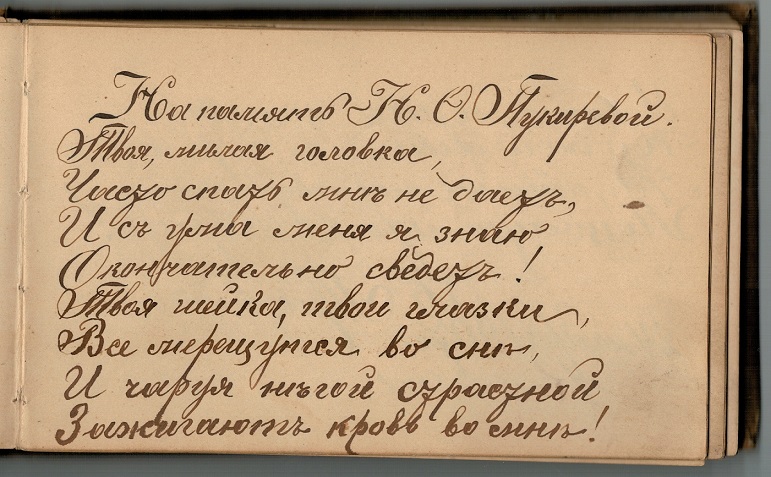 На память Н. О. Пукиревой.
Твоя, милая головка,
Часто спать мнѣ не даетъ,
И съ ума меня я знаю
Окончательно сведетъ!
Твоя шейка, твои глазки,
Все мерещутся во снѣ,
И чаруя нѣгой страстной
Зажигаютъ кровь во мнѣ!